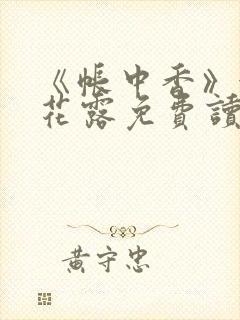 《帳中香》
花露免費讀
黃守忠